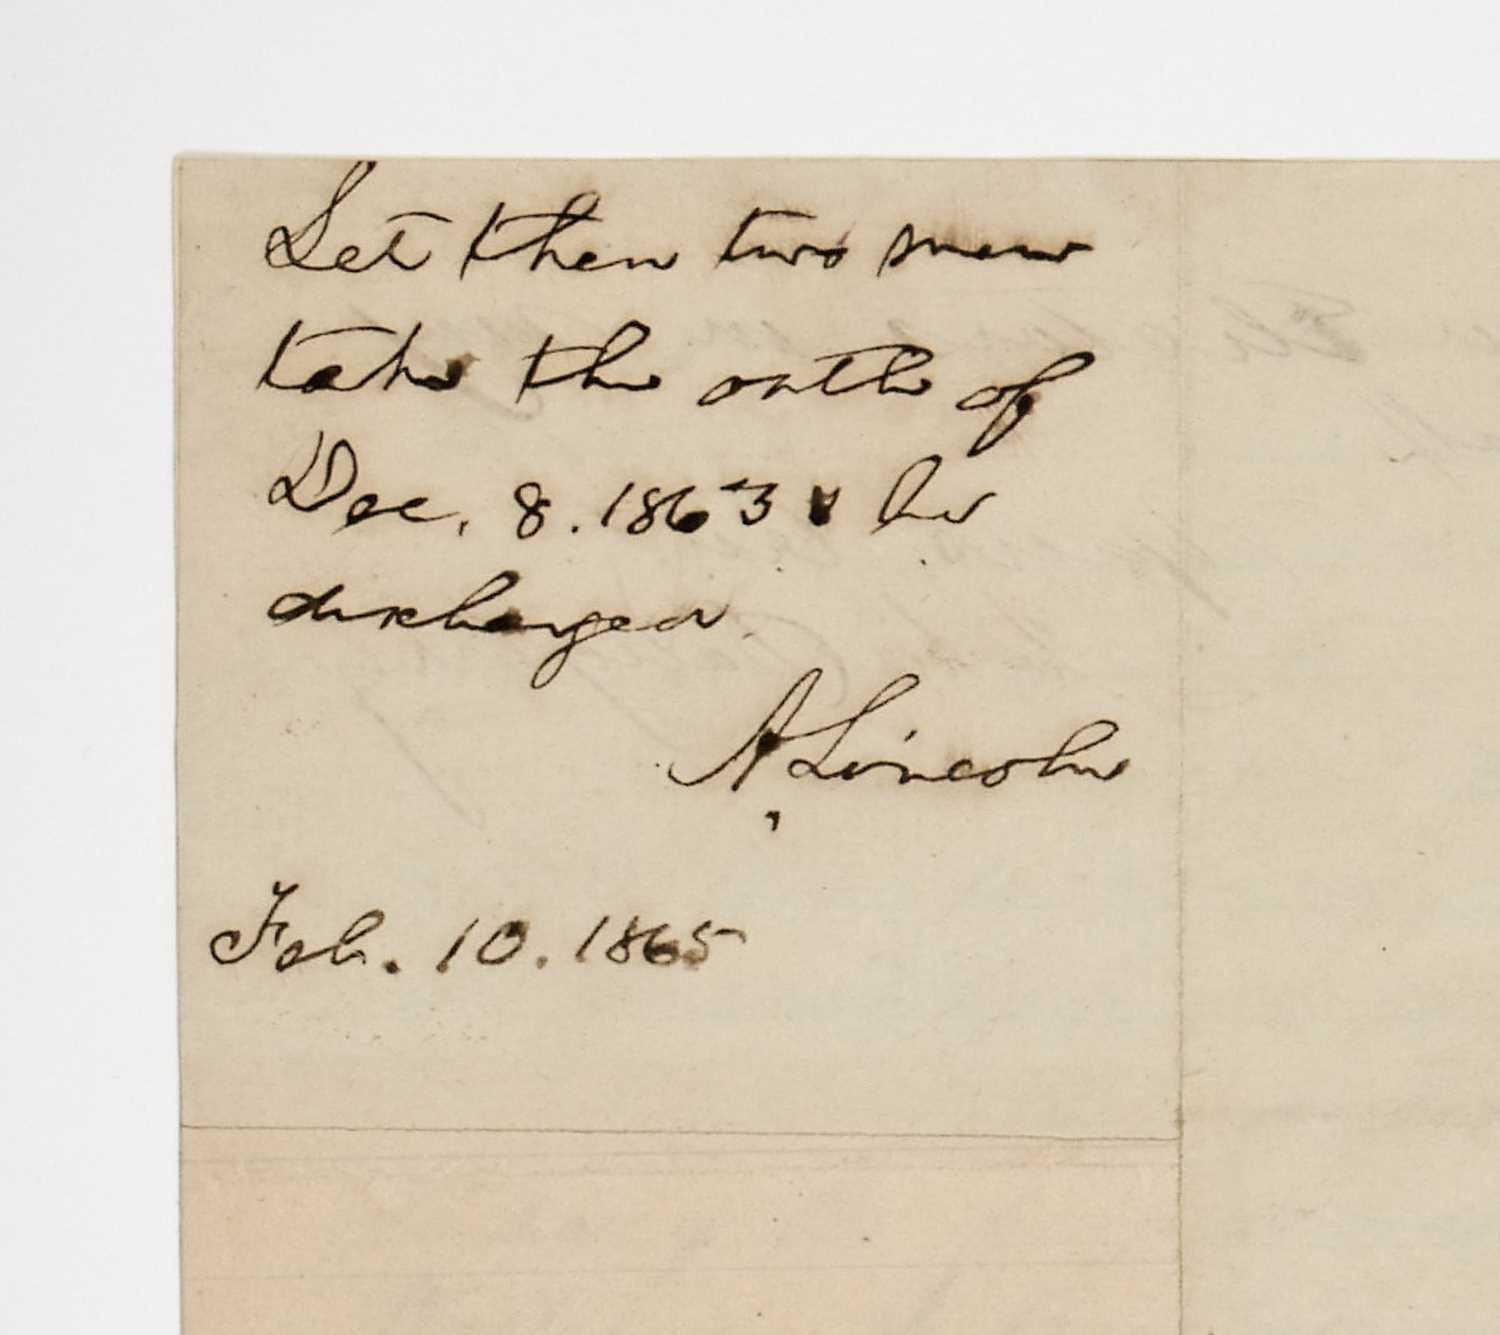 Let then two men
take the oath of
Dec. 8. 1863 & be
discharged.
A. Lincoln
Feb. 10. 1865